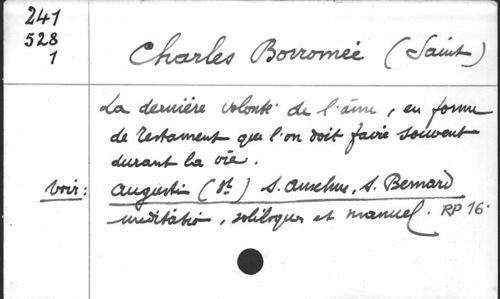 241
528
1
Charles Borromée (Saint)
La dernière volonté de l'âme, en forme
de Testament que l'on doit faire souvent
durant la vie.
Voir: Augustin (St.) S. Anselme, S. Bernard
méditatio, soliloques et manuel. RP 16.